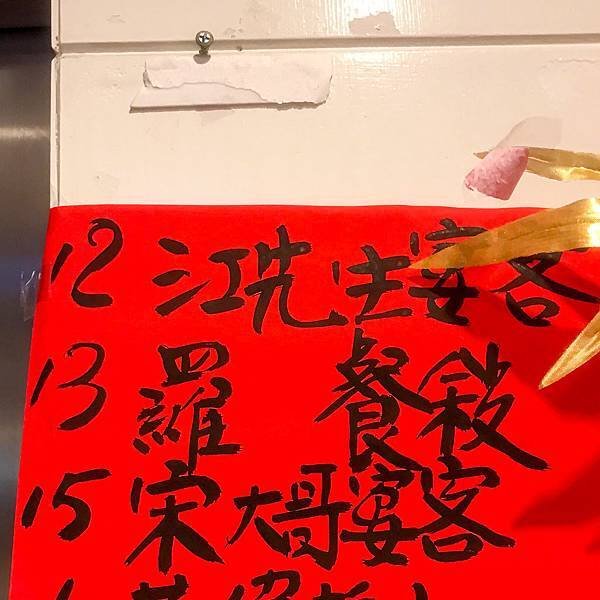 12 江先生宴客
13 羅 餐敘
15 宋大哥宴客